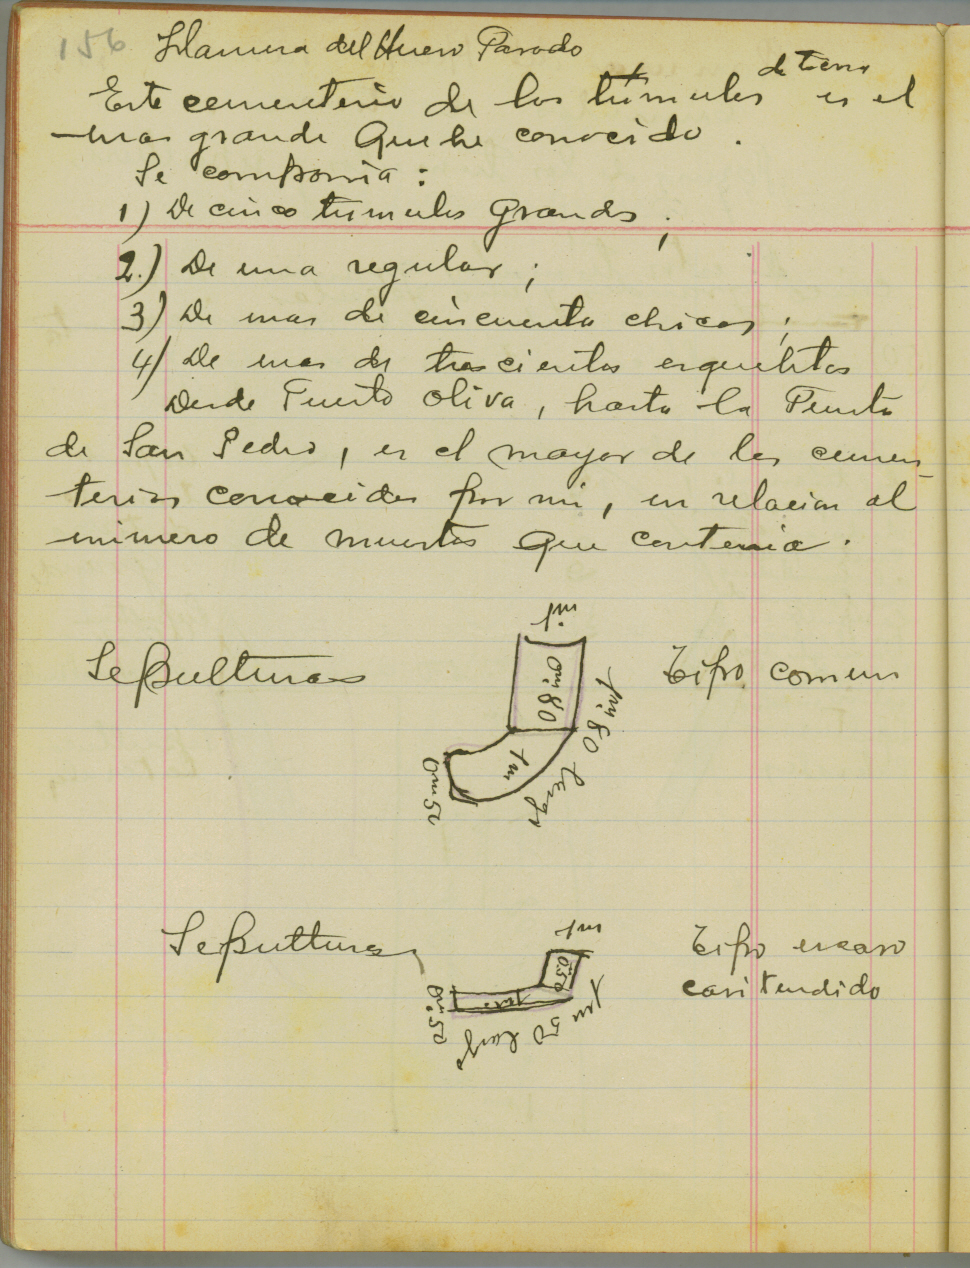 156
Llanura del Hueso Parado
Este cementerio de los túmulos de tierra es el
mas grande que he conocido.
Se componia:
1) De cinco túmulos grandes;
2.) De una regular;
3) De mas de cincuenta chicos;
4) De mas de trescientos esqueletos
Desde Puerto Oliva, hasta la Punta
de San Pedro, es el mayor de los cemen-
terios conocidos por mi, en relacion al
número de muertos que contenia.
1m.
Sepulturas
0m.80
1m.80 largo
Tipo comun
1m
0m50
1m
Sepulturas
0.50
Tipo escaso
casi tendido
0m.50
1m.
1m 50 largo